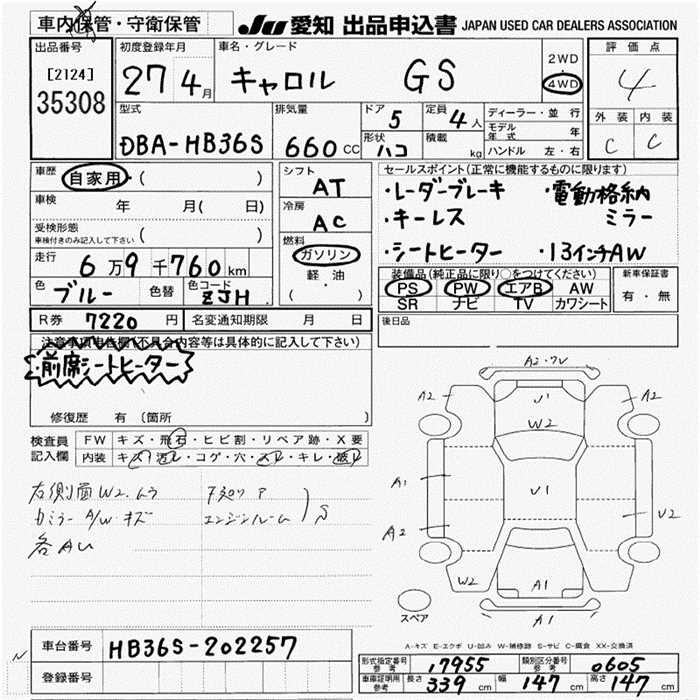 車内保管・守衛保管 JU 愛知 出品申込書 JAPAN USED CAR DEALERS ASSOCIATION
出品番号 [2124] 35308
初度登録年月 27 4月
車名・グレード キャロル GS
2WD 4WD
評価点 4
外装 内装
C C
型式 DBA-HB36S
排気量 660 CC
ドア 5 定員 4人
形状 ハコ 積載 kg
ディーラー・並行
モデル年式 年
ハンドル 左・右
車歴 自家用・( )
車検 年 月( 日)
受検形態 車検付きのみ記入して下さい ( )
走行 6万9千760km
色 ブルー 色替 色コード ZJH
シフト AT
冷房 AC
燃料 ガソリン
軽油
( ・ )
セールスポイント(正常に機能するものに限ります)
・レーダーブレーキ ・電動格納
・キーレス ミラー
・シートヒーター ・13インチAW
装備品(純正品に限り○をつけてください)
PS PW エアB AW
SR ナビ TV カワシート
新車保証書
有・無
R券 7220円 名変通知期限 月 日
後日品
注意事項申告欄(不具合内容等は具体的に記入して下さい)
・前席シートヒーター
修復歴 有 〔箇所 〕
検査員記入欄
FW キズ・飛石・ヒビ割・リペア跡・X要
内装 キズ・汚レ・コゲ・穴・スレ・キレ・破レ
右側面W2.ムラ
A/W キズ
エンジンルーム S
各AU
A2・
A2 U1 A2
W2
A1 U1
A2 U2
W2 A1
A1
スペア
A-キズ E-エクボ U-凹み W-補修跡 S-サビ C-腐食 XX-交換済
車台番号 HB36S-202257
登録番号
型式指定番号 参考 17955 類別区分番号 参考 0605
車庫証明用 参考 長さ 339cm 幅 147cm 高さ 147cm